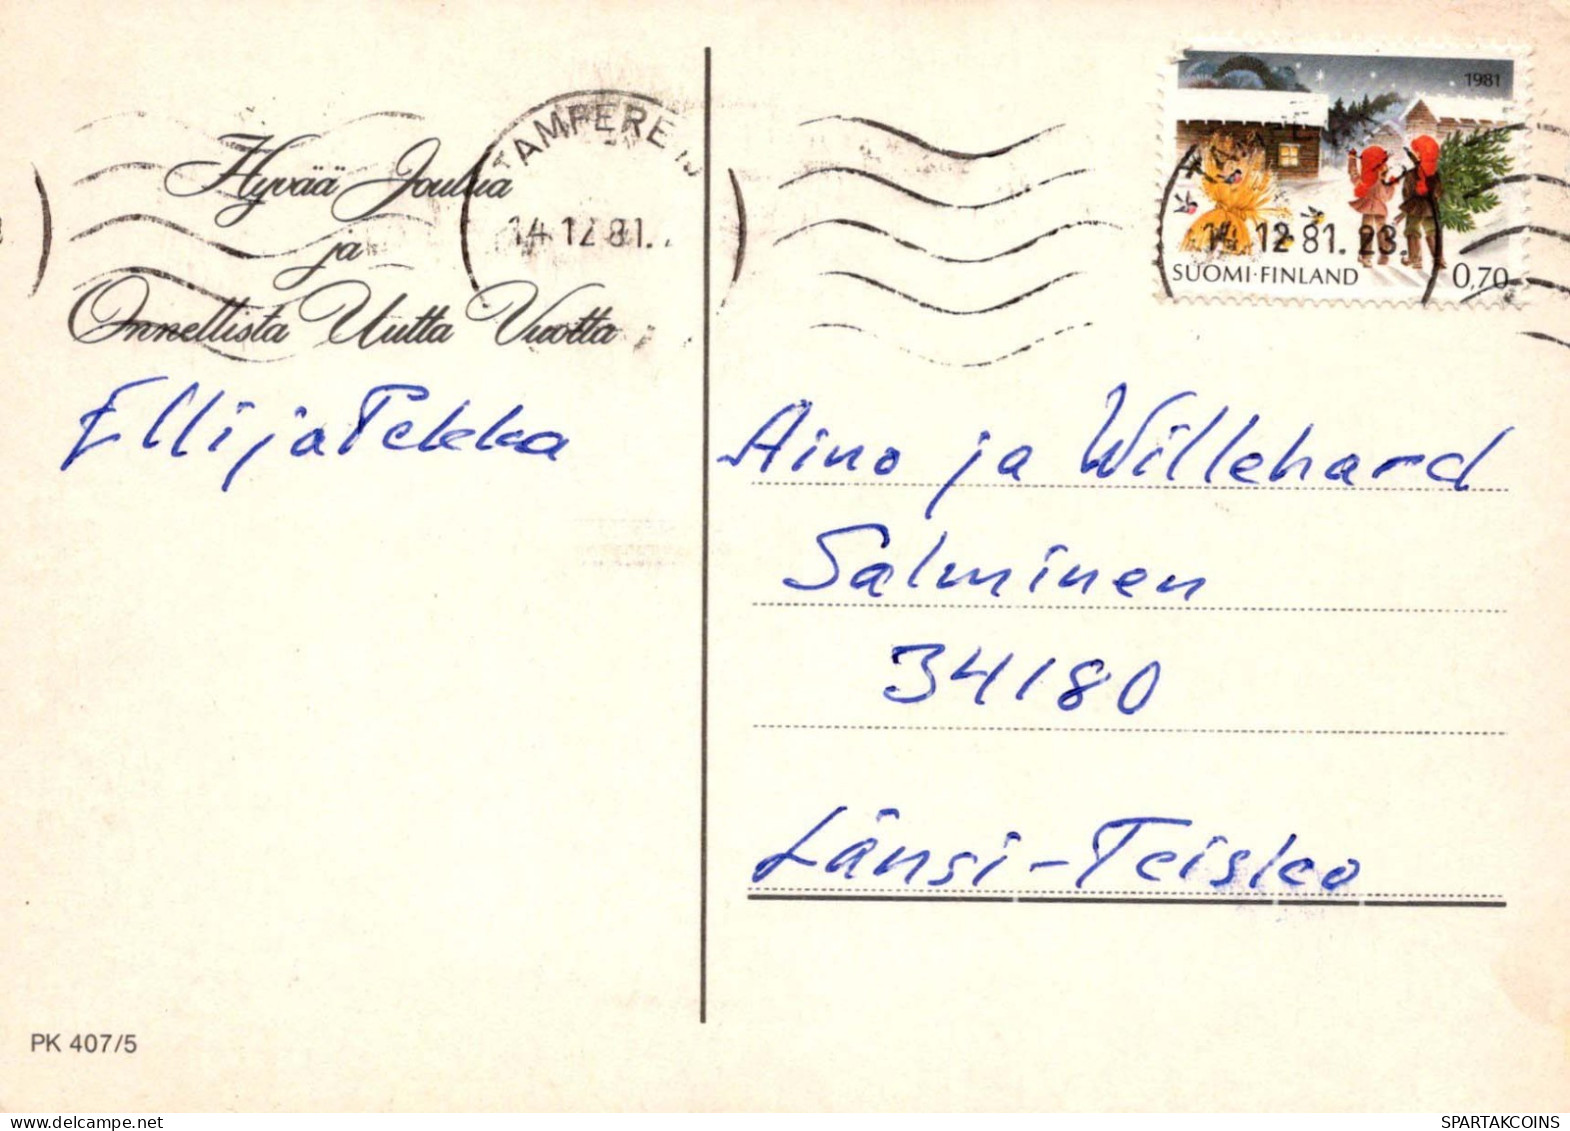 Hyvää Joulua
ja
Onnellista Uutta Vuotta
TAMPERE
14.12.81.
1981
14.12.81.23.
SUOMI-FINLAND
0,70
Elli ja Pekka
Aino ja Willehard
Salminen
34180
Länsi-Teisko
PK 407/5
delcampe.net
SPARTAKCOINS